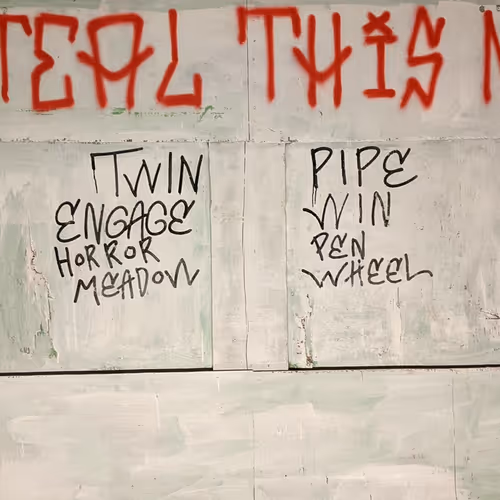 TEAL THIS
TWIN
ENGAGE
HORROR
MEADOW
PIPE
WIN
PEN
WHEEL